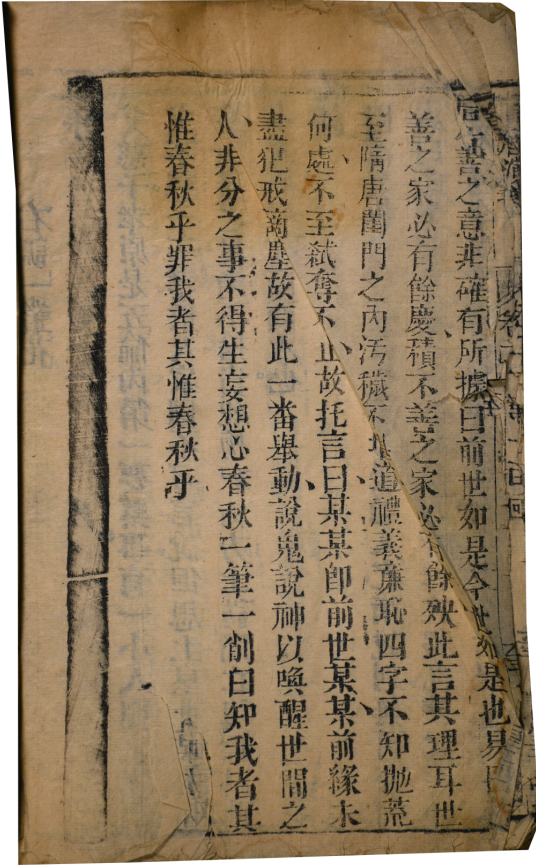 善之意非確有所據曰前世如是今世如是也易曰
善之家必有餘慶積不善之家必有餘殃此言其理耳世
至隋唐閨門之內污穢不堪道禮義廉恥四字不知拋荒
何處不至弒奪不止故托言曰某某即前世某某前緣未
盡犯戒謫塵故有此一番舉動說鬼說神以喚醒世間之
人非分之事不得生妄想心春秋一筆一削曰知我者其
惟春秋乎罪我者其惟春秋乎